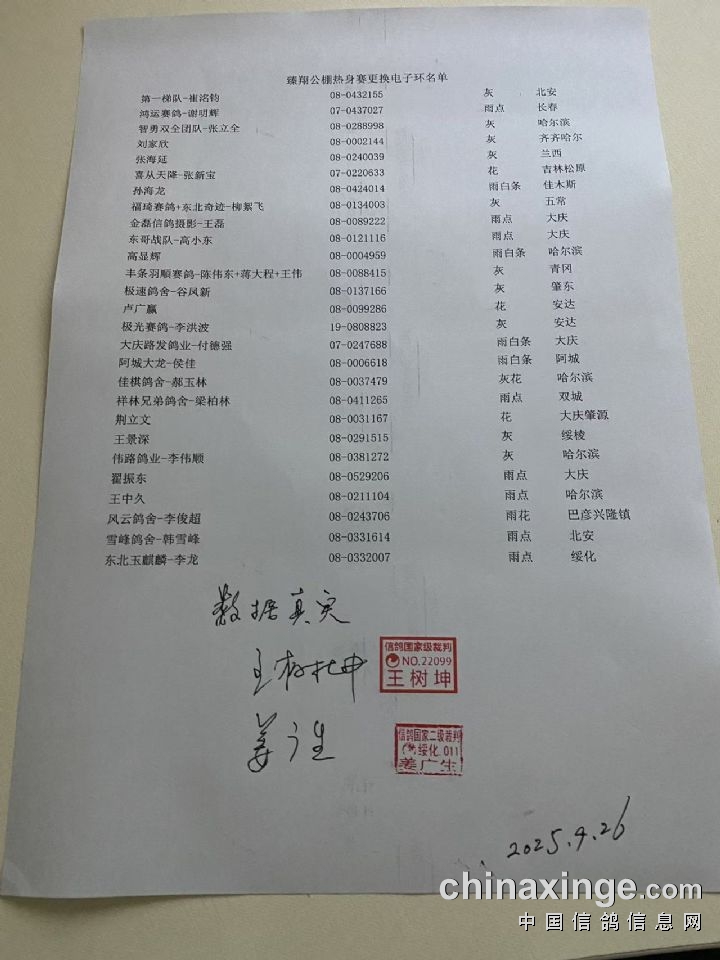 臻翔公棚热身赛更换电子环名单
第一梯队-崔洺钧 08-0432155 灰 北安
鸿运赛鸽-谢明辉 07-0437027 雨点 长春
智勇双全团队-张立全 08-0288998 灰 哈尔滨
刘家欣 08-0002144 灰 齐齐哈尔
张海延 08-0240039 灰 兰西
喜从天降-张新宝 07-0220633 花 吉林松原
孙海龙 08-0424014 雨白条 佳木斯
福琦赛鸽+东北奇迹-柳絮飞 08-0134003 灰 五常
金磊信鸽摄影-王磊 08-0089222 雨点 大庆
东哥战队-高小东 08-0121116 雨点 大庆
高显辉 08-0004959 雨白条 哈尔滨
丰条羽顺赛鸽-陈伟东+蒋大程+王伟 08-0088415 灰 青冈
极速鸽舍-谷凤新 08-0137166 灰 肇东
卢广赢 08-0099286 花 安达
极光赛鸽-李洪波 19-0808823 灰 安达
大庆路发鸽业-付德强 07-0247688 雨白条 大庆
阿城大龙-侯佳 08-0006618 雨白条 阿城
佳棋鸽舍-郝玉林 08-0037479 灰花 哈尔滨
祥林兄弟鸽舍-梁柏林 08-0411265 雨点 双城
荆立文 08-0031167 花 大庆肇源
王景深 08-0291515 灰 绥棱
伟路鸽业-李伟顺 08-0381272 灰 哈尔滨
翟振东 08-0529206 雨点 大庆
王中久 08-0211104 雨点 哈尔滨
风云鸽舍-李俊超 08-0243706 雨花 巴彦兴隆镇
雪峰鸽舍-韩雪峰 08-0331614 雨点 北安
东北玉麒麟-李龙 08-0332007 雨点 绥化
数据真实
王树坤
信鸽国家级裁判
NO.22099
王树坤
姜广生
信鸽国家二级裁判
绥化 011
姜广生
2025.4.26
chinaxinge.com
中国信鸽信息网